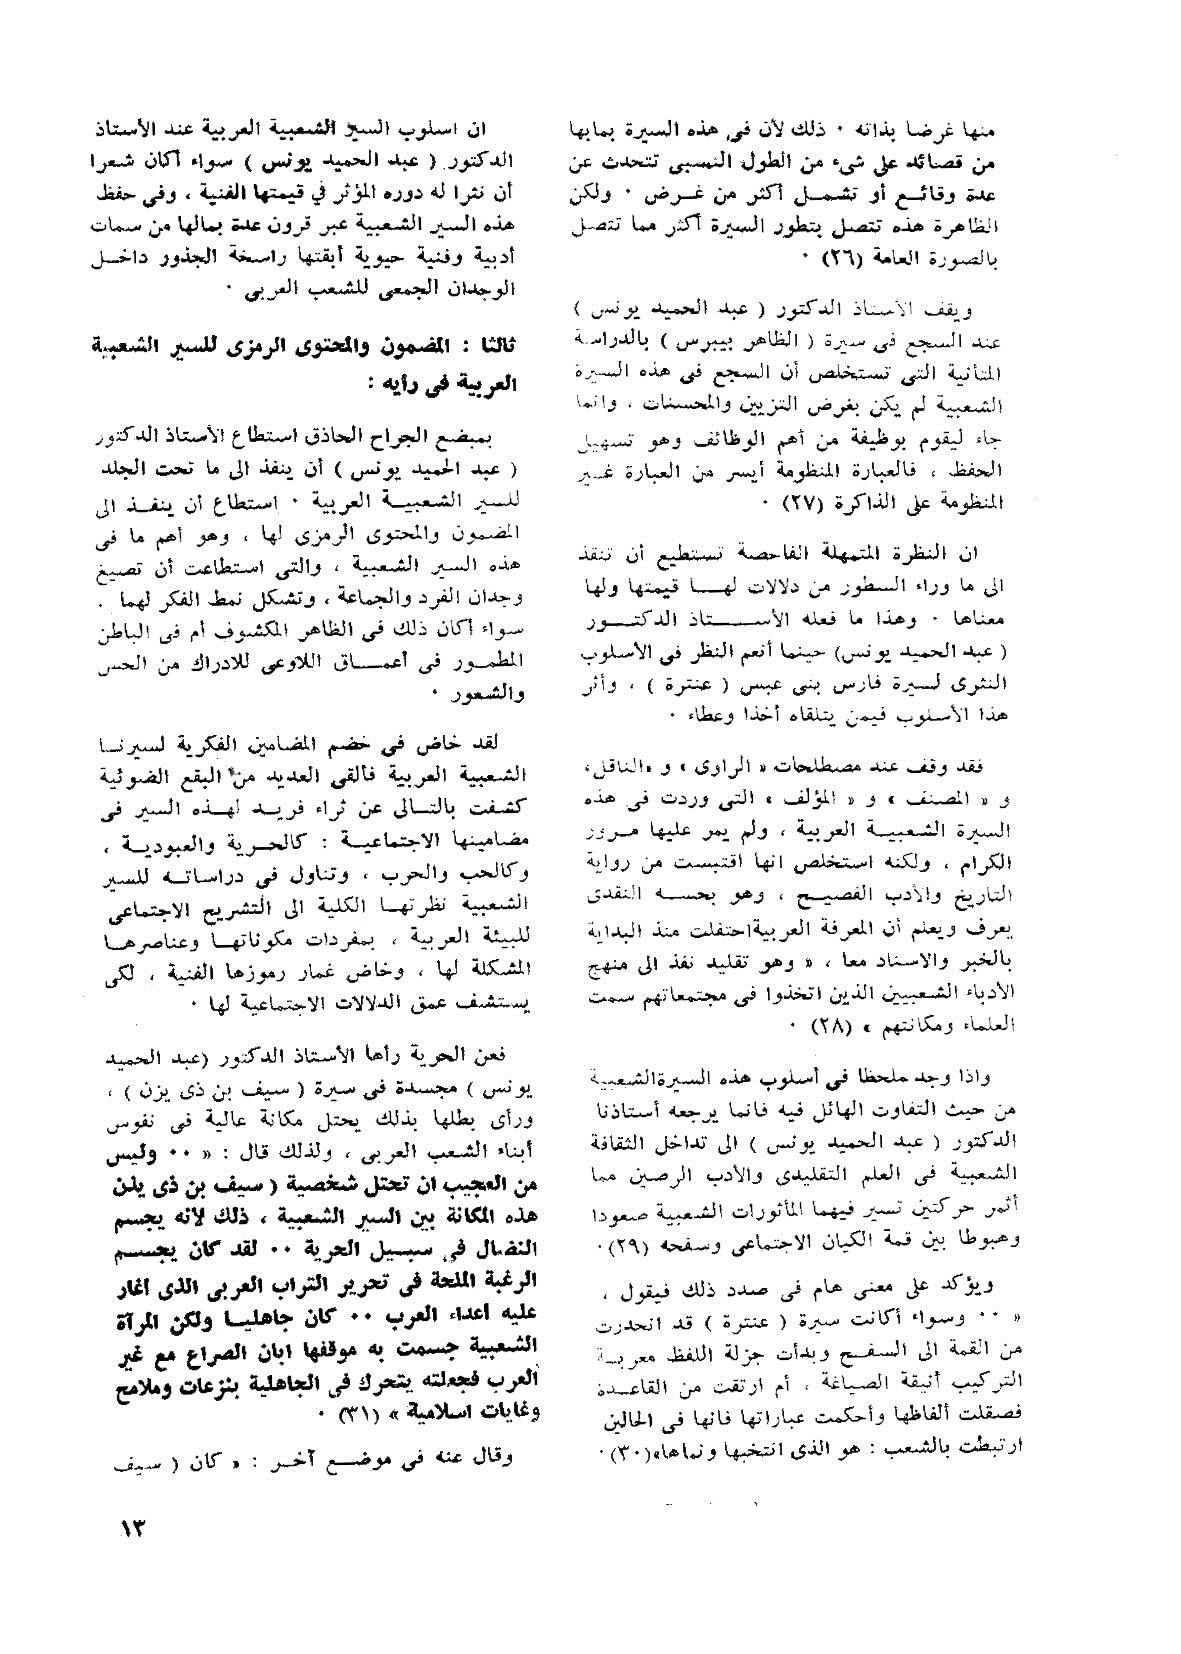 منها غرضا بذاته ٠ ذلك لأن فى هذه السيرة بمابها
من قصائد على شىء من الطول النسبى تتحدث عن
عدة وقائع أو تشمل أكثر من غرض ٠ ولكن
الظاهرة هذه تتصل بتطور السيرة أكثر مما تتصل
بالصورة العامة (٢٦) ٠
ويقف الأستاذ الدكتور ( عبد الحميد يونس )
عند السجع فى سيرة ( الظاهر بيبرس ) بالدراسة
المتأنية التى تستخلص أن السجع فى هذه السيرة
الشعبية لم يكن بغرض التزيين والمحسنات ، وانما
جاء ليقوم بوظيفة من أهم الوظائف وهو تسهيل
الحفظ ، فالعبارة المنظومة أيسر من العبارة غير
المنظومة على الذاكرة (٢٧) ٠
ان النظرة المتمهلة الفاحصة تستطيع أن تنفذ
الى ما وراء السطور من دلالات لها قيمتها ولها
معناها ٠ وهذا ما فعله الأستاذ الدكتور
( عبد الحميد يونس) حينما أنعم النظر فى الأسلوب
النثرى لسيرة فارس بنى عبس ( عنترة ) ، وأثر
هذا الأسلوب فيمن يتلقاه أخذا وعطاء ٠
فقد وقف عند مصطلحات « الراوى » و «الناقل»
و « المصنف » و « المؤلف » التى وردت فى هذه
السيرة الشعبية العربية ، ولم يمر عليها مرور
الكرام ، ولكنه استخلص انها اقتبست من رواية
التاريخ والأدب الفصيح ، وهو بحسه النقدى
يعرف ويعلم أن المعرفة العربيةاحتفلت منذ البداية
بالخبر والاسناد معا ، « وهو تقليد نفذ الى منهج
الأدباء الشعبيين الذين اتخذوا فى مجتمعاتهم سمت
العلماء ومكانتهم » (٢٨) ٠
واذا وجد ملحظا فى أسلوب هذه السيرةالشعبية
من حيث التفاوت الهائل فيه فانما يرجعه أستاذنا
الدكتور ( عبد الحميد يونس ) الى تداخل الثقافة
الشعبية فى العلم التقليدى والأدب الرصين مما
أثمر حركتين تسير فيهما المأثورات الشعبية صعودا
وهبوطا بين قمة الكيان الاجتماعى وسفحه (٢٩)٠
ويؤكد على معنى هام فى صدد ذلك فيقول ،
« ٠٠ وسواء أكانت سيرة ( عنترة ) قد انحدرت
من القمة الى السفح وبدأت جزلة اللفظ معربة
التركيب أنيقة الصياغة ، أم ارتقت من القاعدة
فصقلت ألفاظها وأحكمت عباراتها فانها فى الحالين
ارتبطت بالشعب : هو الذى انتخبها ونماها»(٣٠)٠
ان اسلوب السير الشعبية العربية عند الأستاذ
الدكتور ( عبد الحميد يونس ) سواء أكان شعرا
أن نثرا له دوره المؤثر في قيمتها الفنية ، وفى حفظ
هذه السير الشعبية عبر قرون عدة بمالها من سمات
أدبية وفنية حيوية أبقتها راسخة الجذور داخل
الوجدان الجمعى للشعب العربى ٠
ثالثا : المضمون والمحتوى الرمزى للسير الشعبية
العربية فى رأيه :
بمبضع الجراح الحاذق استطاع الأستاذ الدكتور
( عبد الحميد يونس ) أن ينفذ الى ما تحت الجلد
للسير الشعبية العربية ٠ استطاع أن ينفذ الى
المضمون والمحتوى الرمزى لها ، وهو أهم ما فى
هذه السير الشعبية ، والتى استطاعت أن تصيغ
وجدان الفرد والجماعة ، وتشكل نمط الفكر لهما .
سواء أكان ذلك فى الظاهر المكشوف أم فى الباطن
المطمور فى أعماق اللاوعى للادراك من الحس
والشعور ٠
لقد خاض فى خضم المضامين الفكرية لسيرنا
الشعبية العربية فألقى العديد من البقع الضوئية
كشفت بالتالى عن ثراء فريد لهذه السير فى
مضامينها الاجتماعية : كالحرية والعبودية ،
وكالحب والحرب ، وتناول فى دراساته للسير
الشعبية نظرتها الكلية الى التشريح الاجتماعى
للبيئة العربية ، بمفردات مكوناتها وعناصرها
المشكلة لها ، وخاض غمار رموزها الفنية ، لكى
يستشف عمق الدلالات الاجتماعية لها ٠
فعن الحرية رأها الأستاذ الدكتور (عبد الحميد
يونس ) مجسدة فى سيرة ( سيف بن ذى يزن ) ،
ورأى بطلها بذلك يحتل مكانة عالية فى نفوس
أبناء الشعب العربى ، ولذلك قال : « ٠٠ وليس
من العجيب ان تحتل شخصية ( سيف بن ذى يزن
هذه المكانة بين السير الشعبية ، ذلك لأنه يجسم
النضال فى سبيل الحرية ٠٠ لقد كان يجسم
الرغبة الملحة فى تحرير التراب العربى الذى اغار
عليه اعداء العرب ٠٠ كان جاهليا ولكن المرآة
الشعبية جسمت به موقفها ابان الصراع مع غير
العرب فجعلته يتحرك فى الجاهلية بنزعات وملامح
وغايات اسلامية » (٣١) ٠
وقال عنه فى موضع آخر : « كان ( سيف
١٣